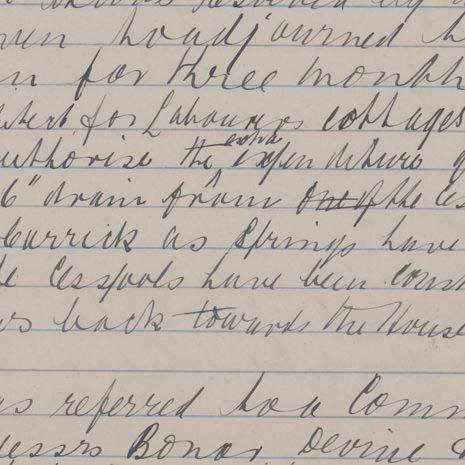 resolved by
adjourned
in for three month
for Labourers cottages
authorise the extra expenditure of
6" drain from one of the ces
Carrick as springs have
e Cesspools have been const
ws back towards the House
as referred to a Comm
Messrs Bonar Devine &